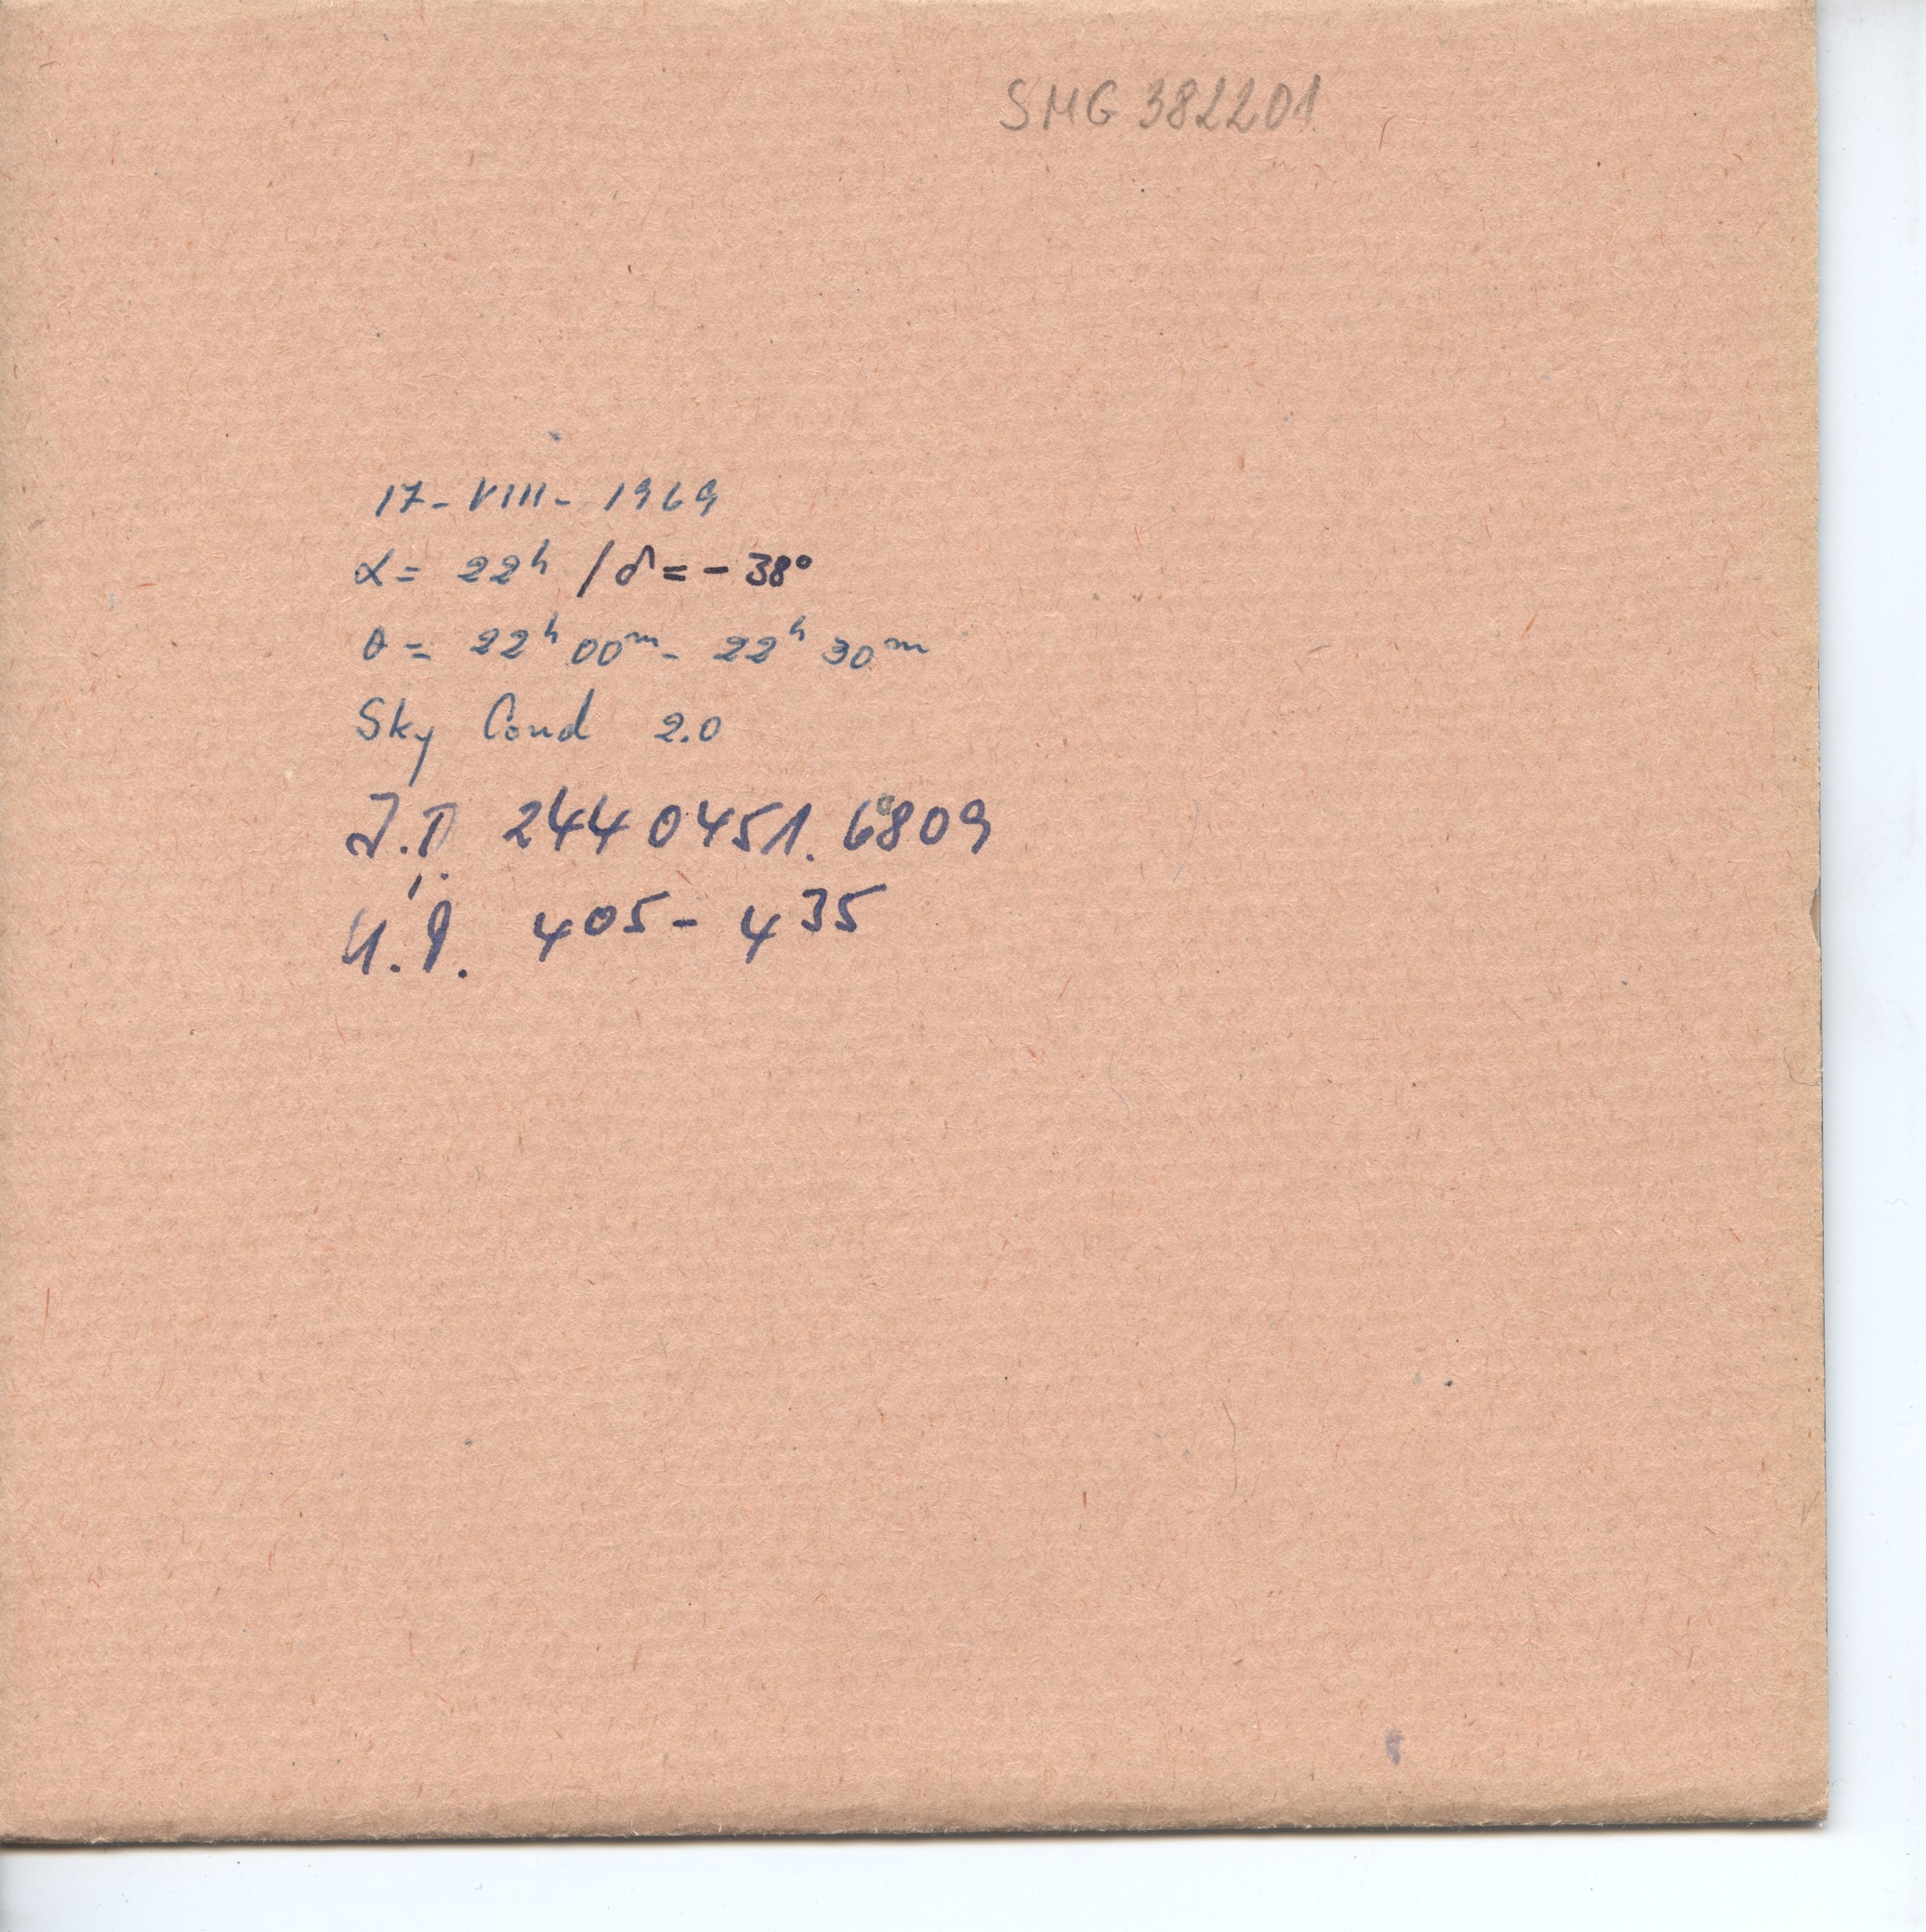 SMG 382201
17-VIII-1969
α = 22ʰ / δ = -38°
θ = 22ʰ 00ᵐ - 22ʰ 30ᵐ
Sky Cond 2.0
J.D. 2440451.6809
405 - 435